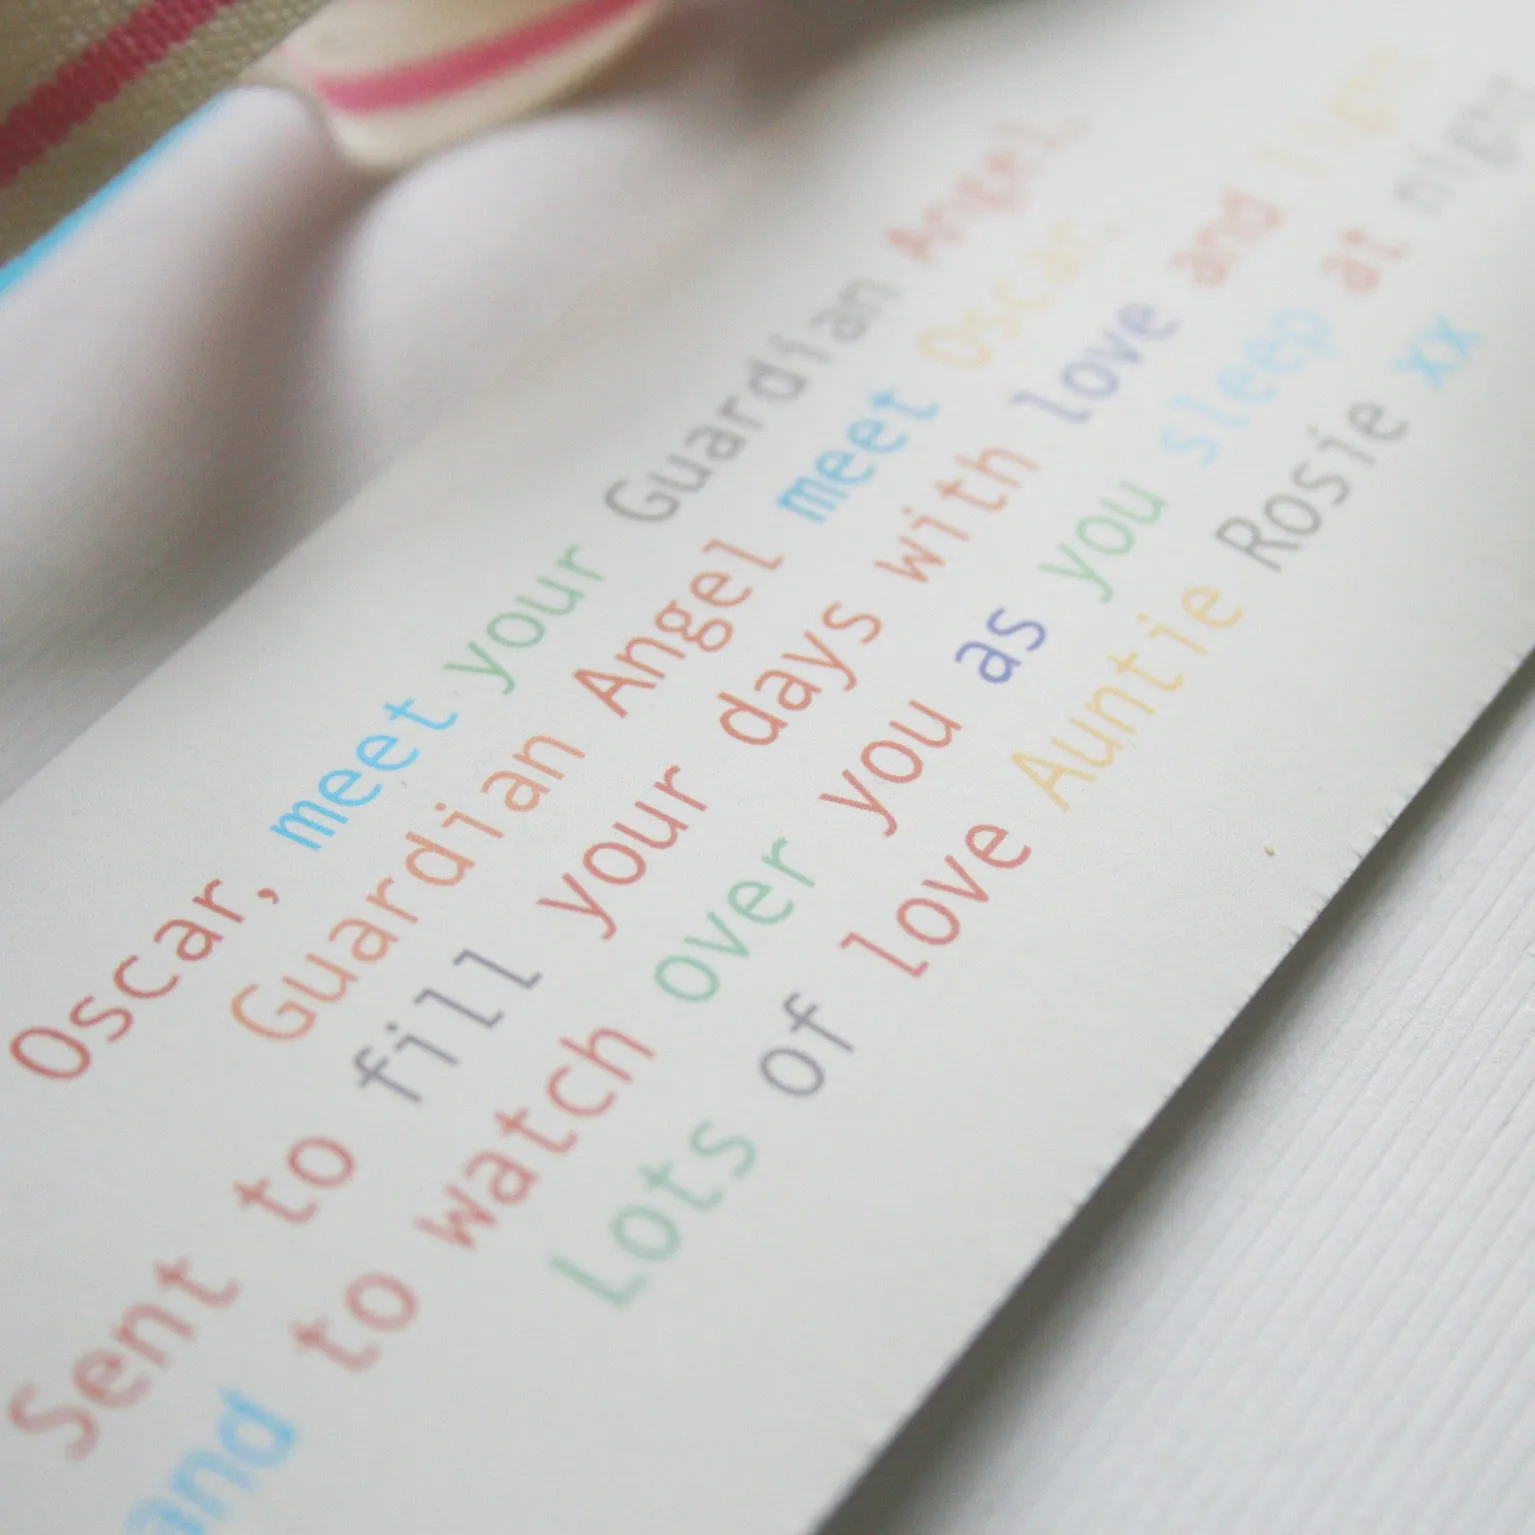 Oscar, meet your Guardian Angel.
Guardian Angel meet Oscar.
Sent to fill your days with love and light
and to watch over you as you sleep at night
Lots of love Auntie Rosie xx